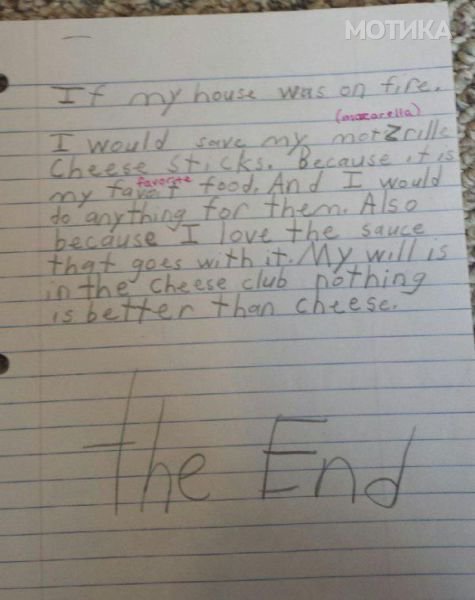 МОТИКА
If my house was on fire.
(mozarella)
I would save my motzrille
cheese sticks. Because it is
favorite
my favot food. And I would
do anything for them. Also
because I love the sauce
that goes with it. My will is
in the cheese club nothing
is better than cheese.
The End